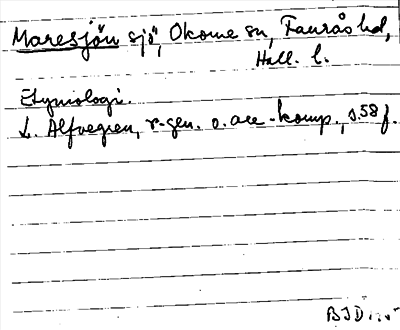 Maresjön sjö, Okome sn, Faurås hd,
Hall. l.
Etymologi.
L. Alfvegren, r-gen. o. are-komp., s.58 f.